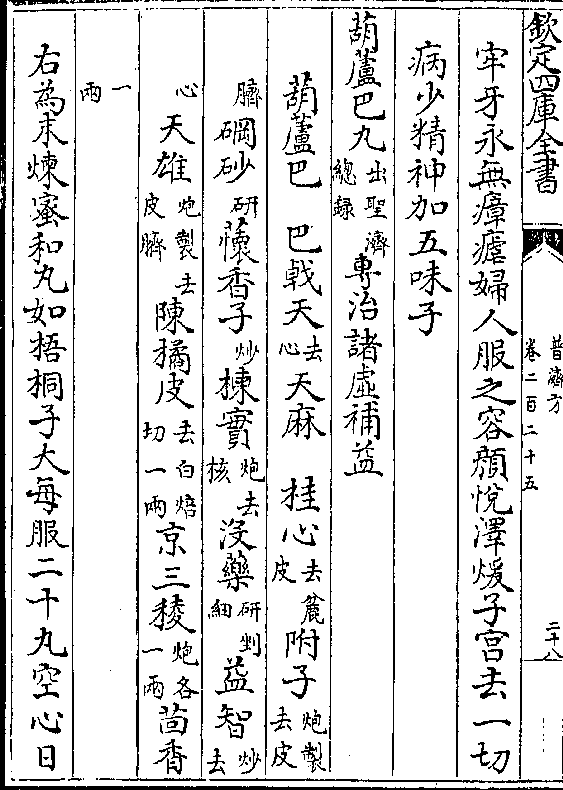 欽定四庫全書
普濟方
卷二百二十五
二十八
牢牙永無瘴瘧婦人服之容顔悅澤煖子宫去一切
病少精神加五味子
葫蘆巴丸出聖濟總録專治諸虛補益
葫蘆巴 巴戟天去心天麻 桂心去麄皮附子炮製去皮
臍硇砂研蘹香子炒楝實炮去核沒藥研剉細益智炒去
心天雄炮製去皮臍陳橘皮去白焙切一兩京三稜炮各一兩茴香
一兩
右為末煉蜜和丸如梧桐子大每服二十丸空心日